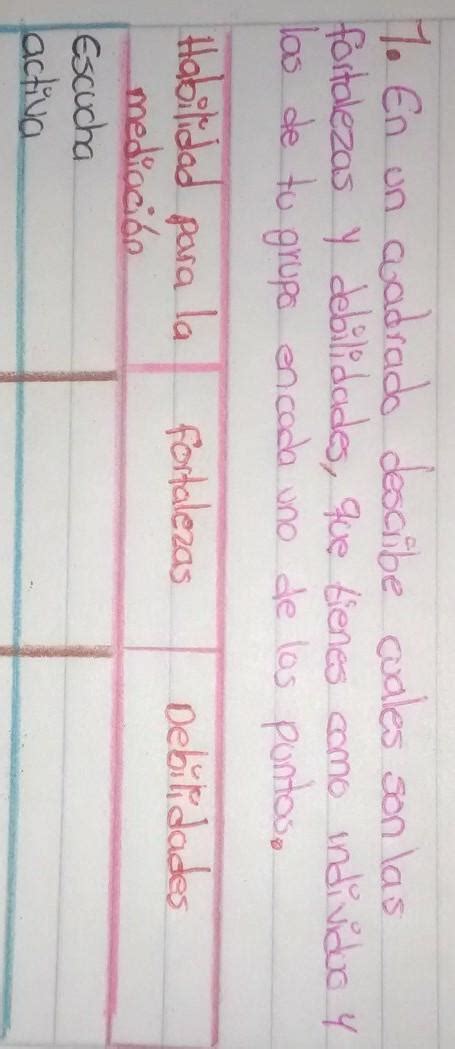 7. En un cuadrado describe cuales son las
fortalezas y debilidades, que tienes como individuo y
las de tu grupo en cada uno de los puntos.
Habilidad para la mediación
fortalezas
Debilidades
Escucha
activa